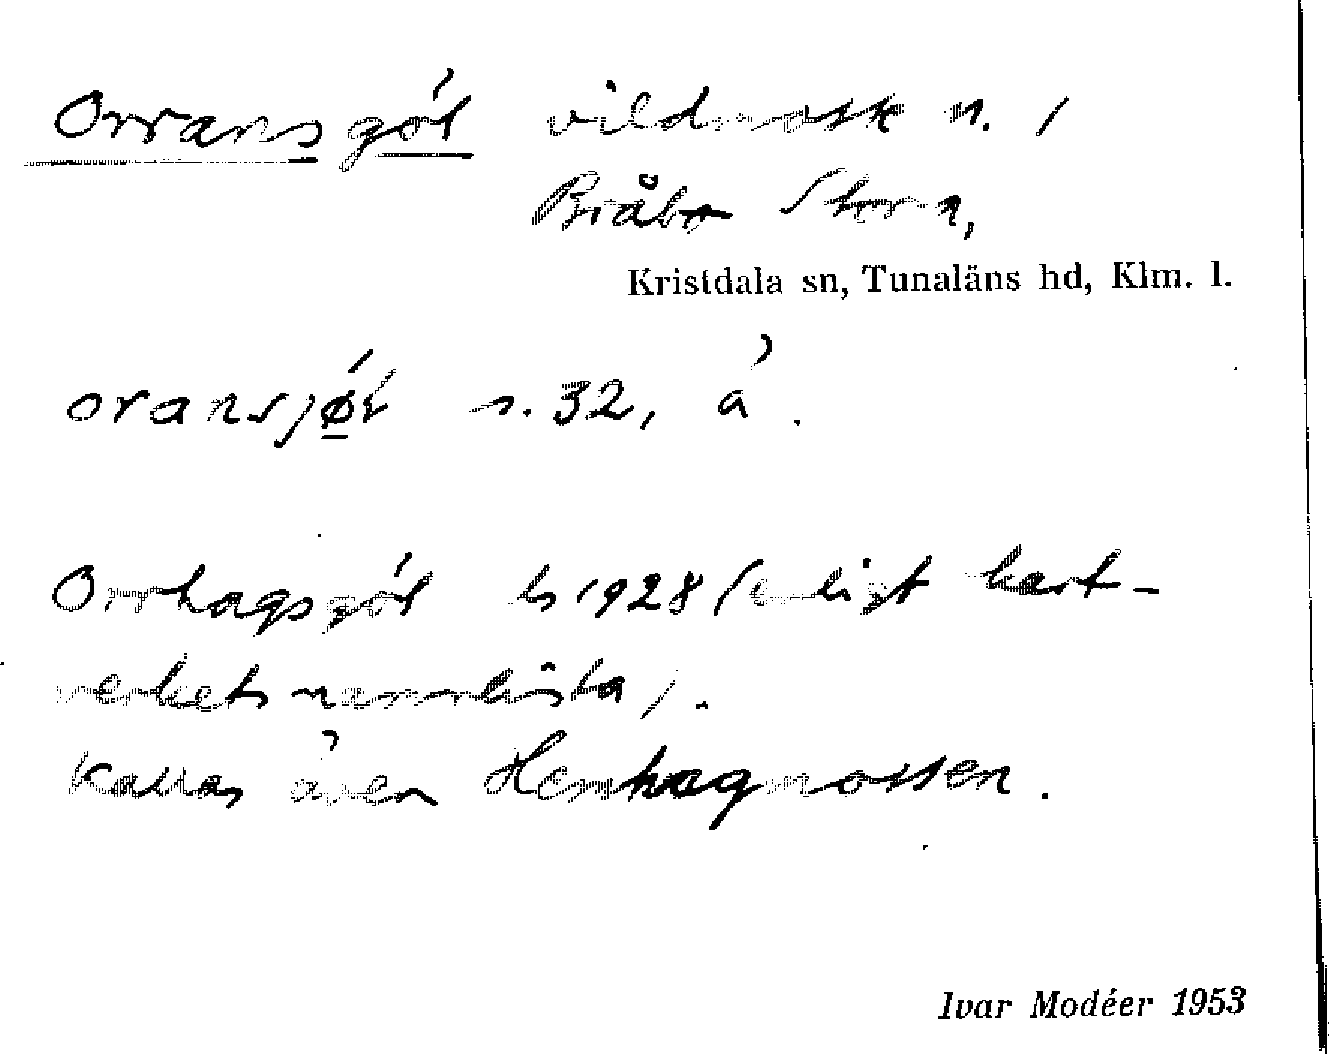 Orransgöl vildmosse n. /
Bråbo Stora,
Kristdala sn, Tunaläns hd, Klm. l.
s. 32, á.
Orrhagsgöl hs 1928 (enligt kart-
verkets namnlista).
Kallas även Henhagmossen.
Ivar Modéer 1953